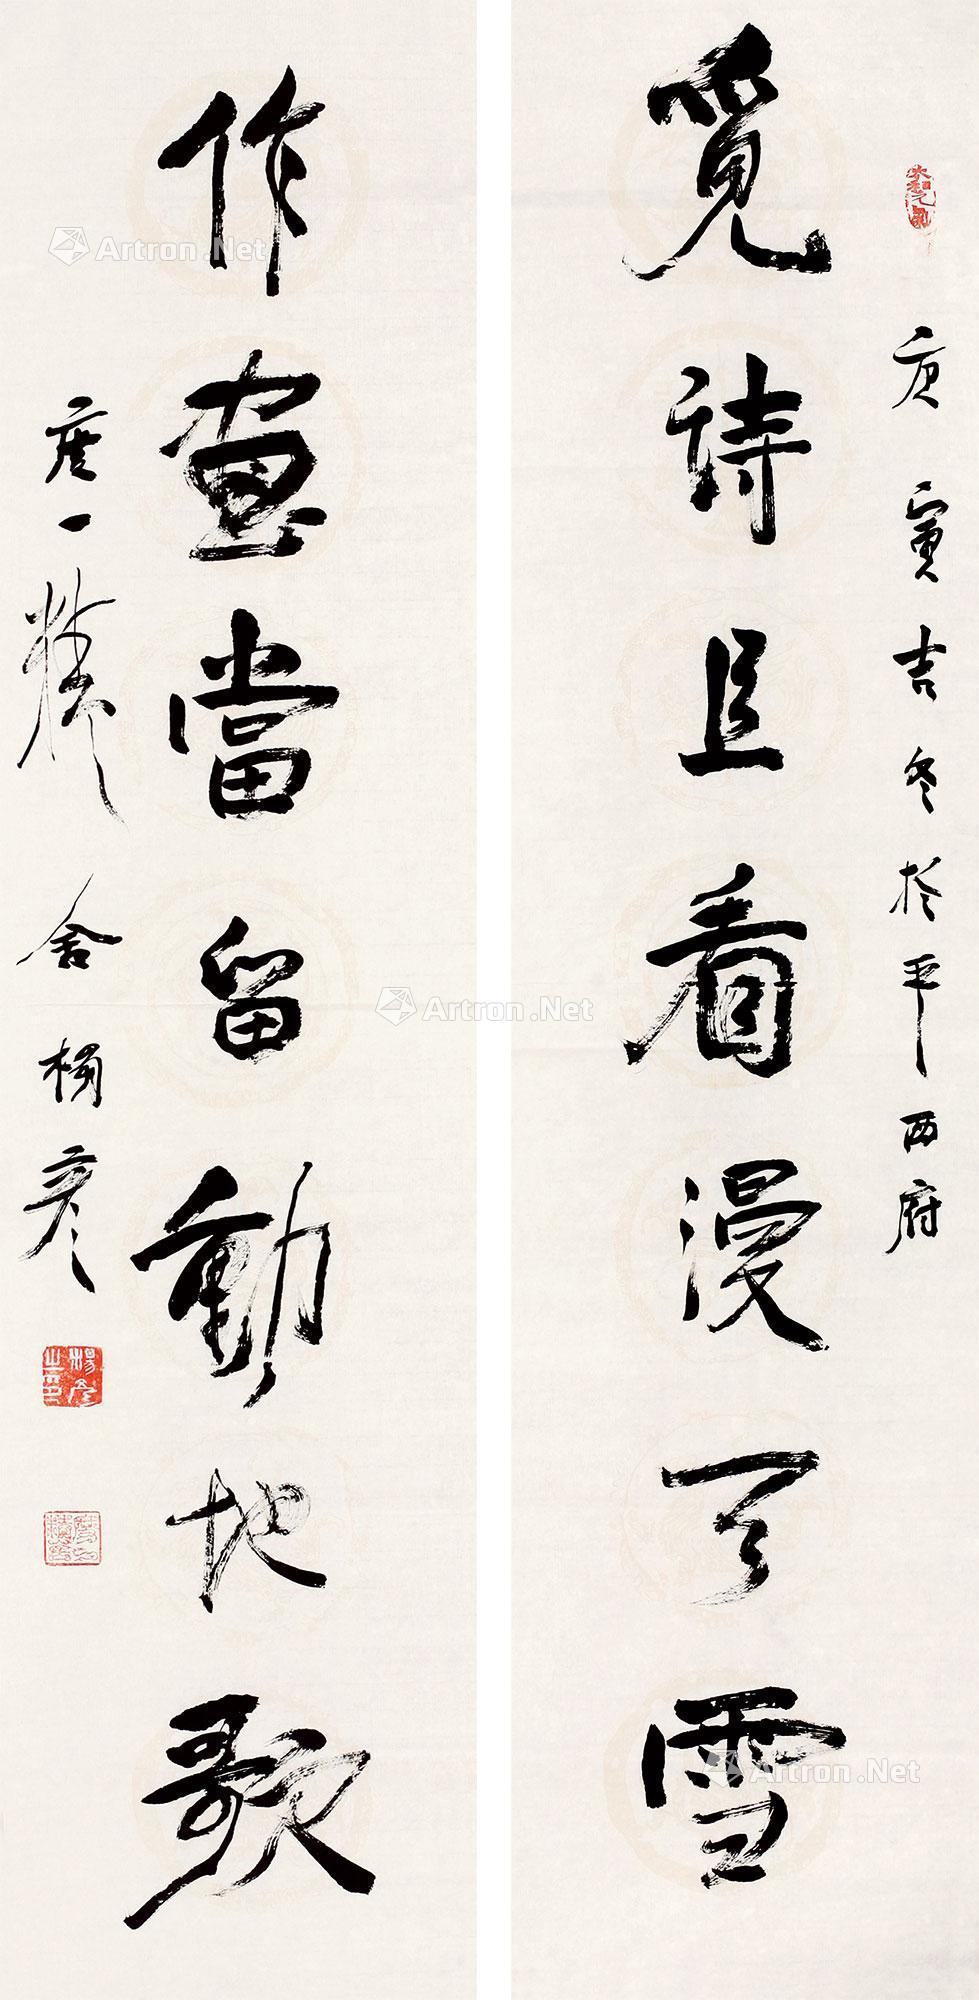 覓詩且看漫天雪
庚寅吉冬於平西府
作畫當留動地歌
度一 舍 楊彦
Artron.Net
Artron.Net
Artron.Net